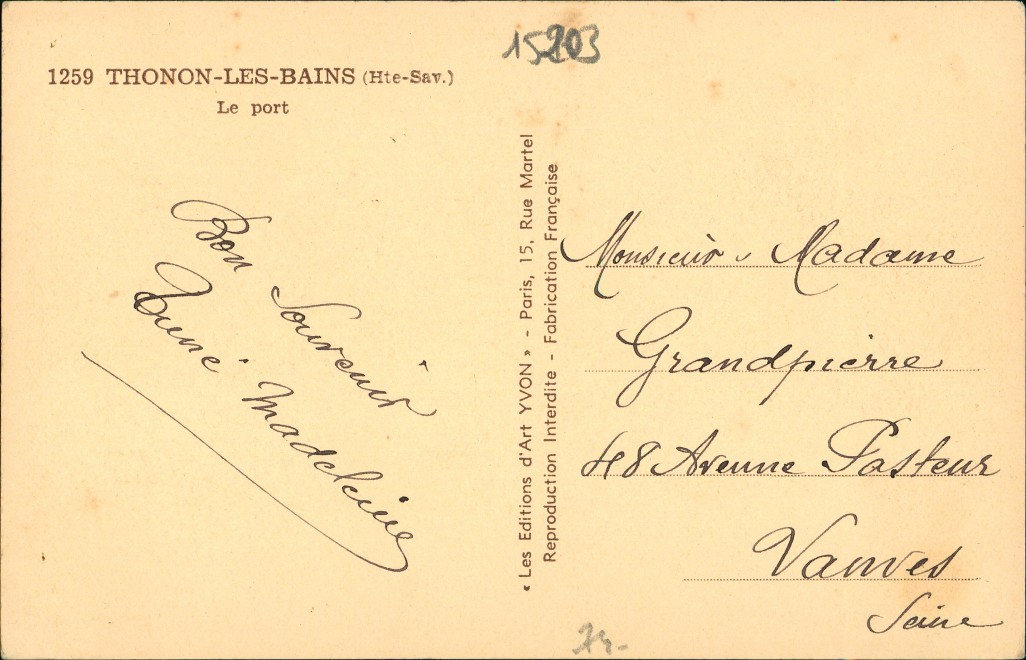 15203
1259 THONON-LES-BAINS (Hte-Sav.)
Le port
Bon Souvenir
Madeleine
« Les Editions d'Art YVON » - Paris, 15, Rue Martel
Reproduction Interdite - Fabrication Française
Monsieur Madame
Grandpierre
48 Avenue Pasteur
Vanves
Seine